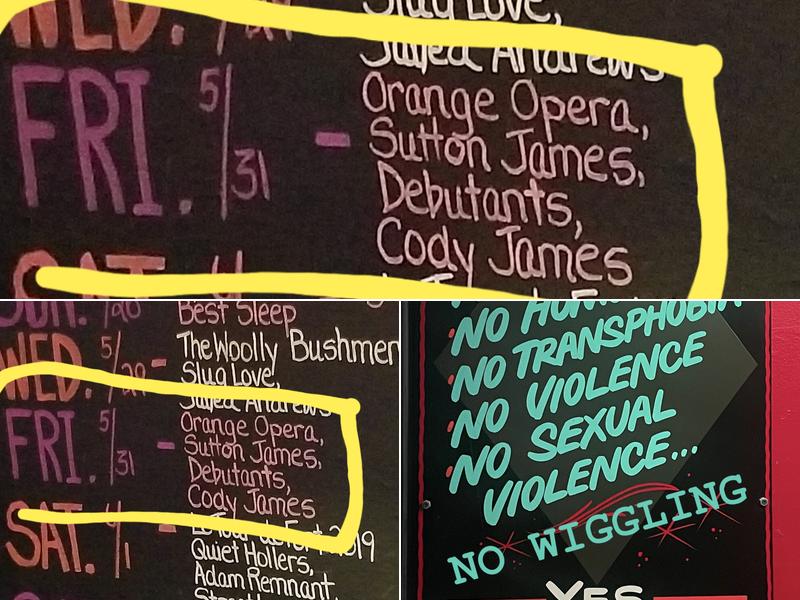 Slug Love,
WED. 5/29
Jared Andrews
FRI. 5/31 - Orange Opera,
Sutton James,
Debutants,
Cody James
SAT.
SUN. Best Sleep
WED. 5/29 - The Woolly Bushmen
Slug Love,
Jared Andrews
FRI. 5/31 - Orange Opera,
Sutton James,
Debutants,
Cody James
SAT. 6/1 - 2019
Quiet Hollers,
Adam Remnant,
NO
NO TRANSPHOBIA
NO VIOLENCE
NO SEXUAL
VIOLENCE...
NO WIGGLING
YES